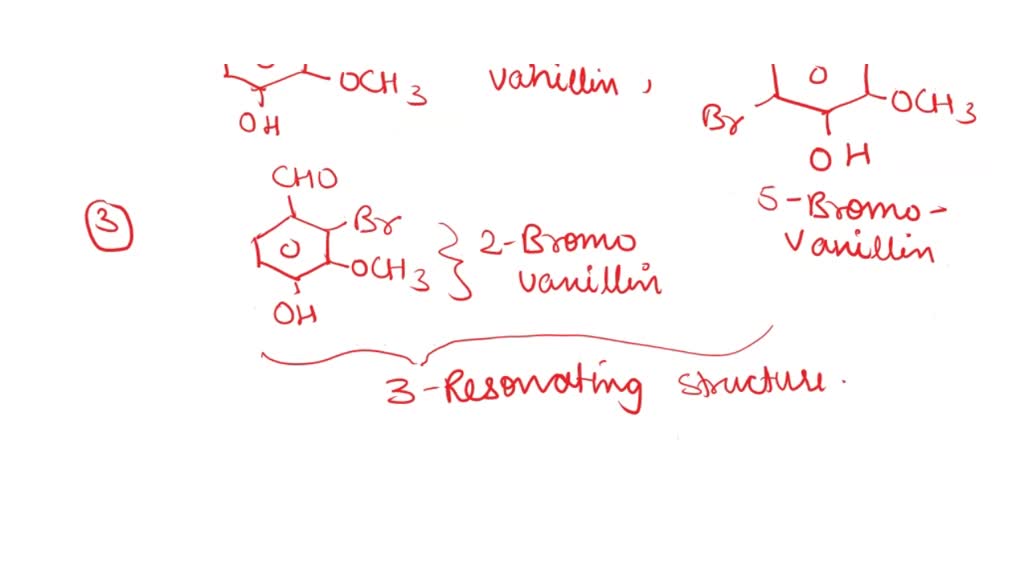 OCH3
vanillin,
OH
Br
OCH3
OH
5-Bromo-
Vanillin
3
CHO
Br
OCH3
OH
2-Bromo
vanillin
3-Resonating structure.